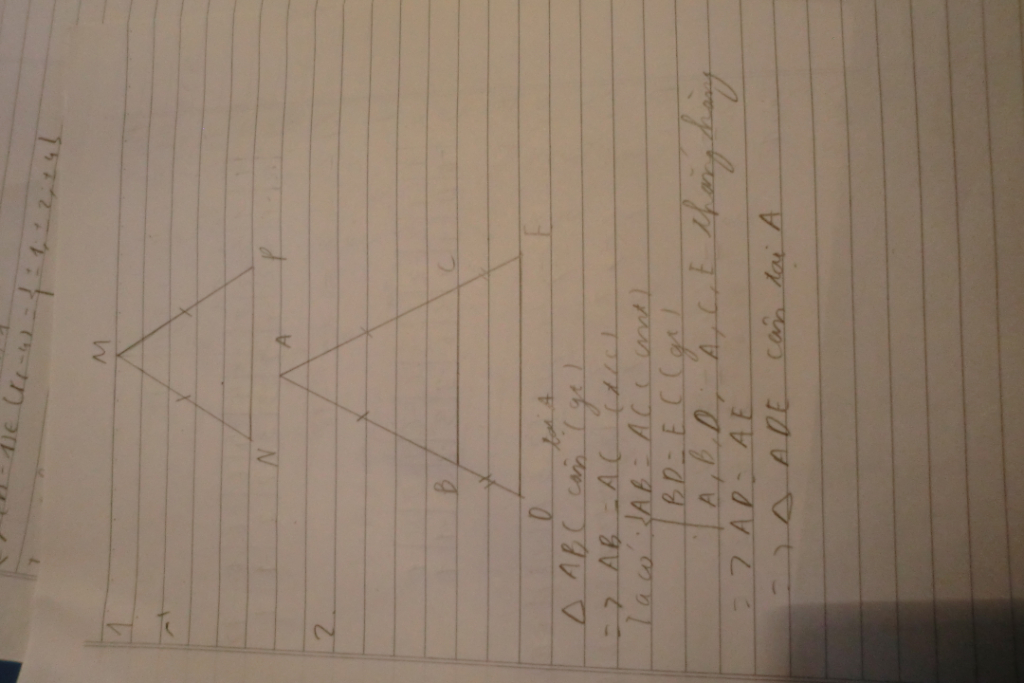 1
M
N
P
2.
A
B
C
D
E
Δ ABC cân tại A (gt)
=> AB = AC (t/c)
Ta có: { AB = AC (cmt)
BD = EC (gt)
A, B, D; A, C, E thẳng hàng
=> AD = AE
=> Δ ADE cân tại A